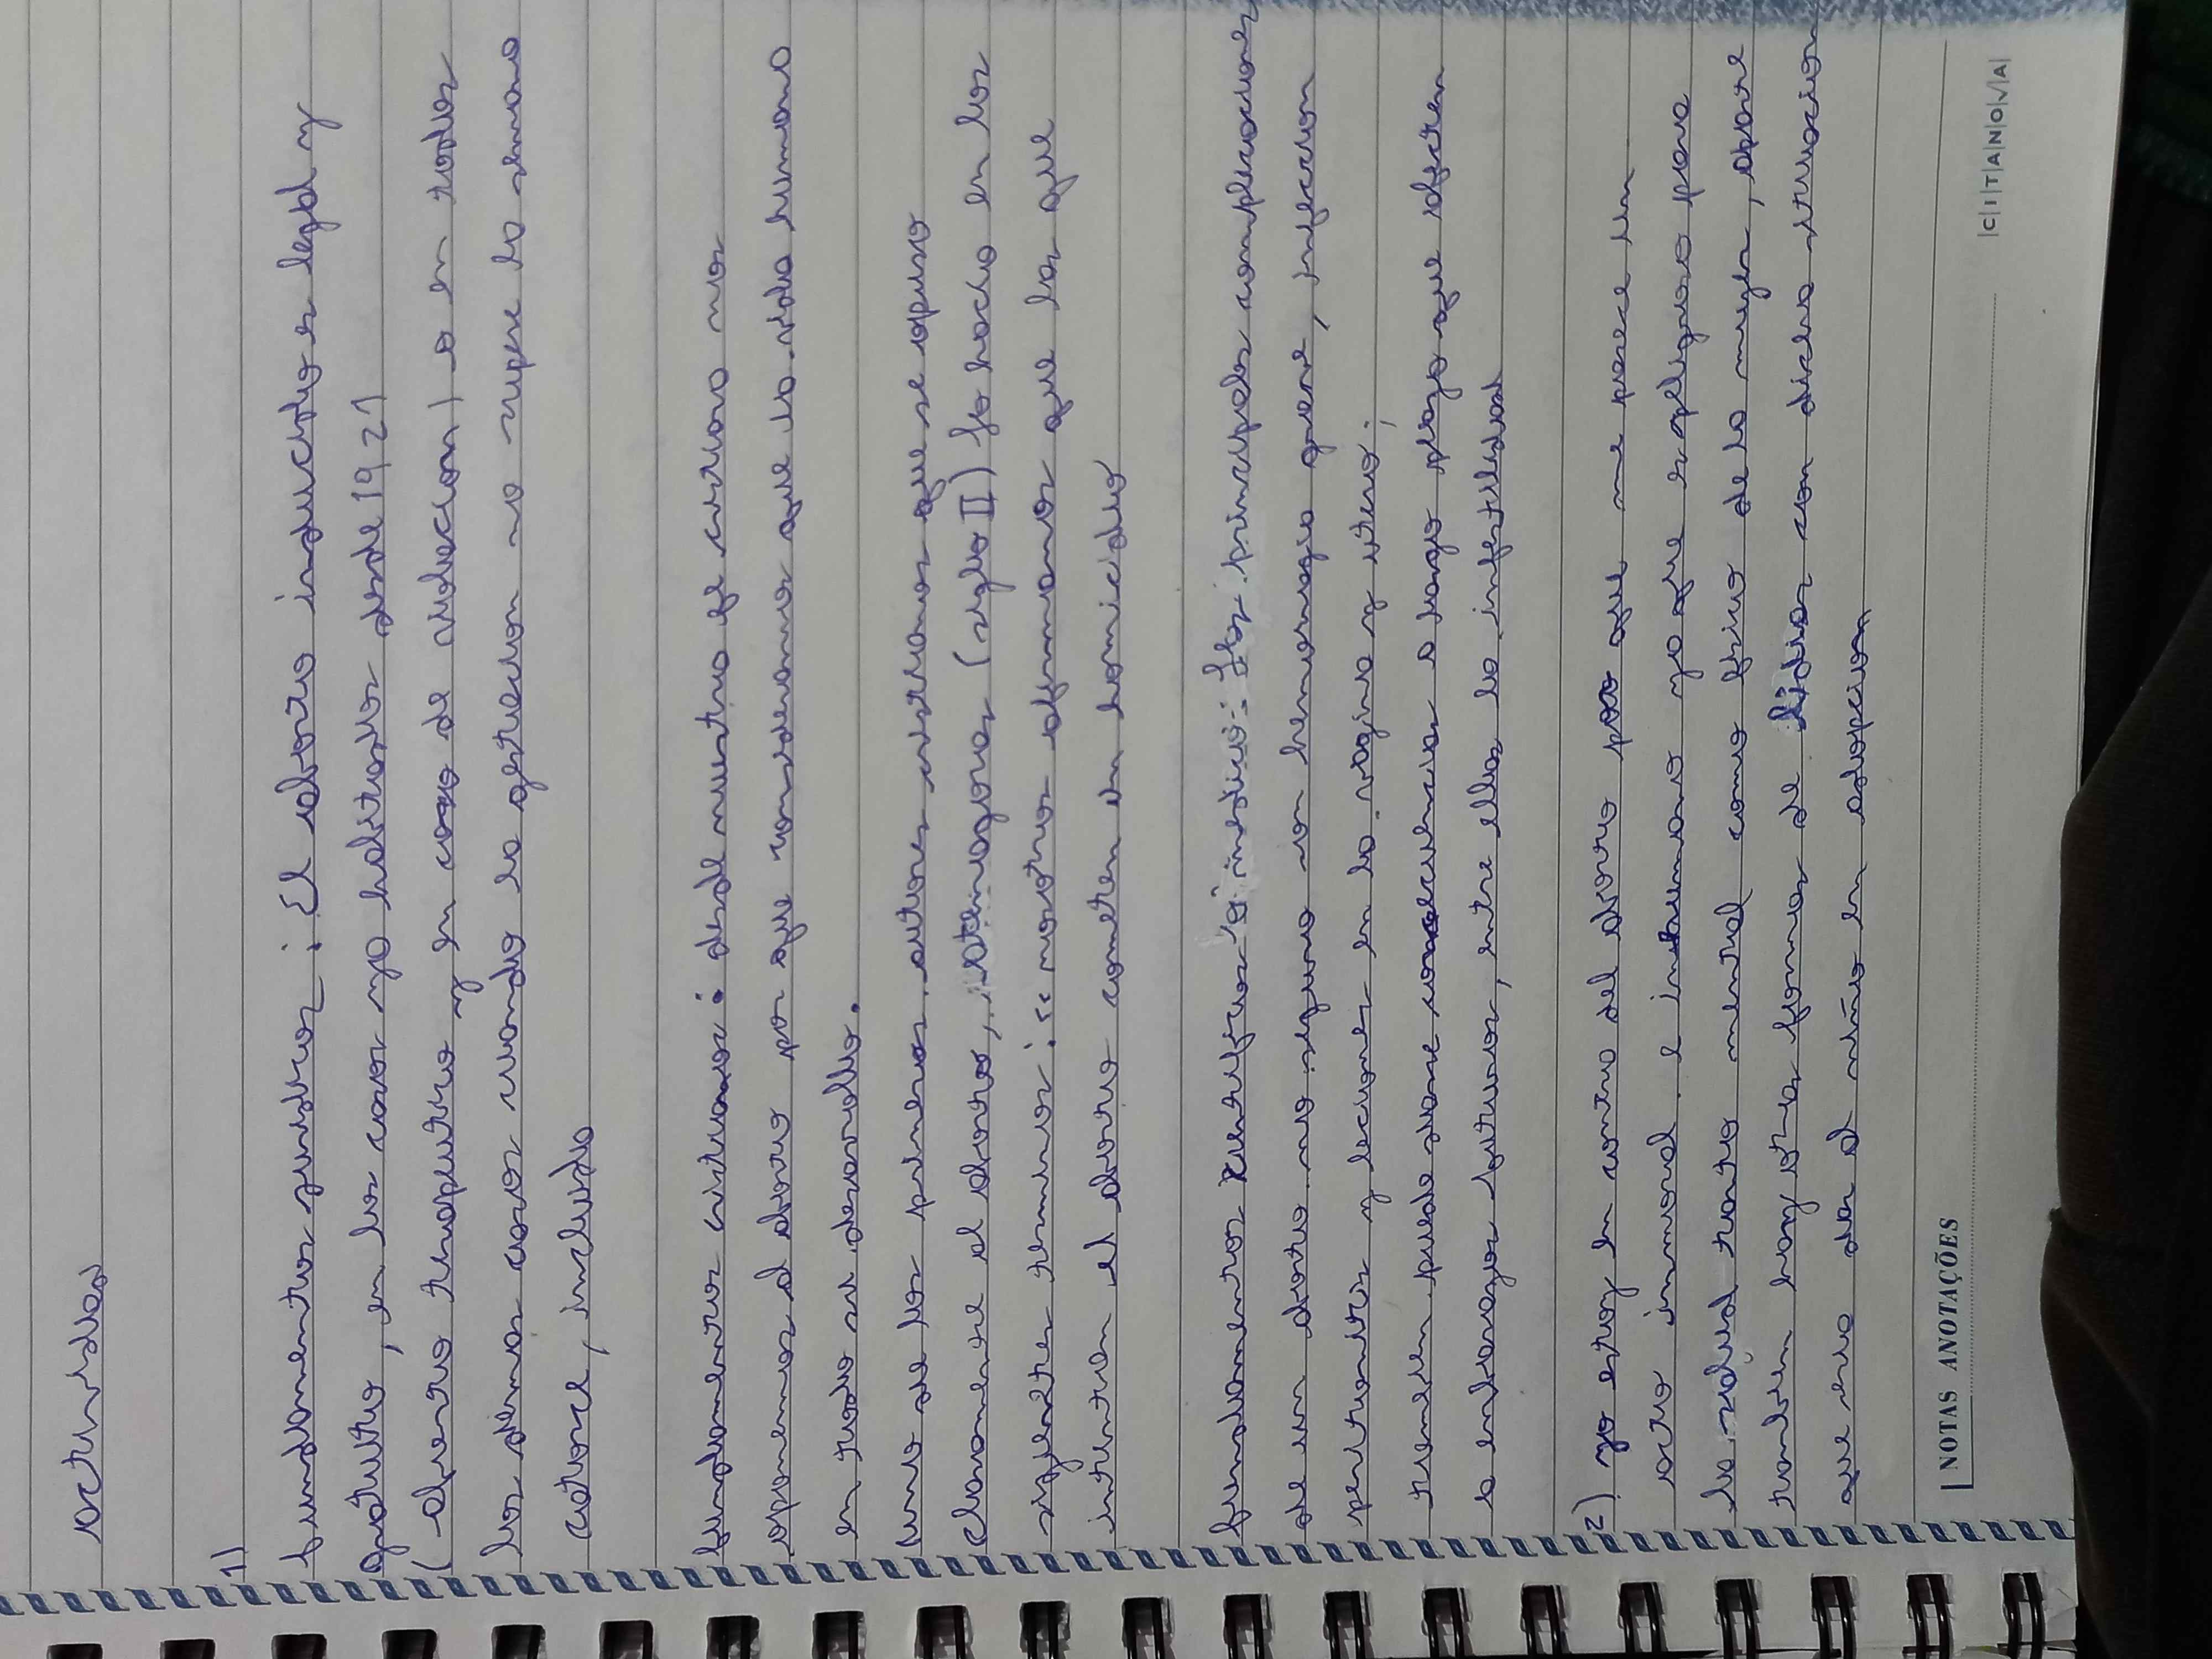 actividad
1)
fundamentos juridicos: El aborto inducido es legal y
gratuito, en los casos ya habituales desde 1921
(aborto terapeutico y en caso de violacion) o en todos
los demas casos cuando la gestacion no supere la semana
catorce, incluido
fundamentos cristianos: desde nuestra fe cristiana nos
oponemos al aborto por que consideramos que la vida humana
en todo su desarrollo.
Uno de los primeros autores cristianos que se opuso
claramente al aborto, Atenagoras (siglo II) lo hacia en los
siguientes terminos: "nosotros afirmamos que las que
intentan el aborto cometen un homicidio
fundamentos cientificos y medicos: Las principales complicaciones
de un aborto no seguro son hemorragia grave, infeccion
peritonitis y leciones en la vagina y utero;
tambien puede darse consecuencias a largo plazo que afecten
a embarazos futuros, entre ellas la infertilidad
2) yo estoy en contra del aborto por que me parece un
acto inmoral e inhumano ya que es peligroso para
la salud tanto mental como fisica de la mujer, aparte
tambien hay otras formas de lidiar con dicha situacion
que seria dar al niño en adopcion
NOTAS ANOTAÇÕES
|C|I|T|A|N|O|V|A|